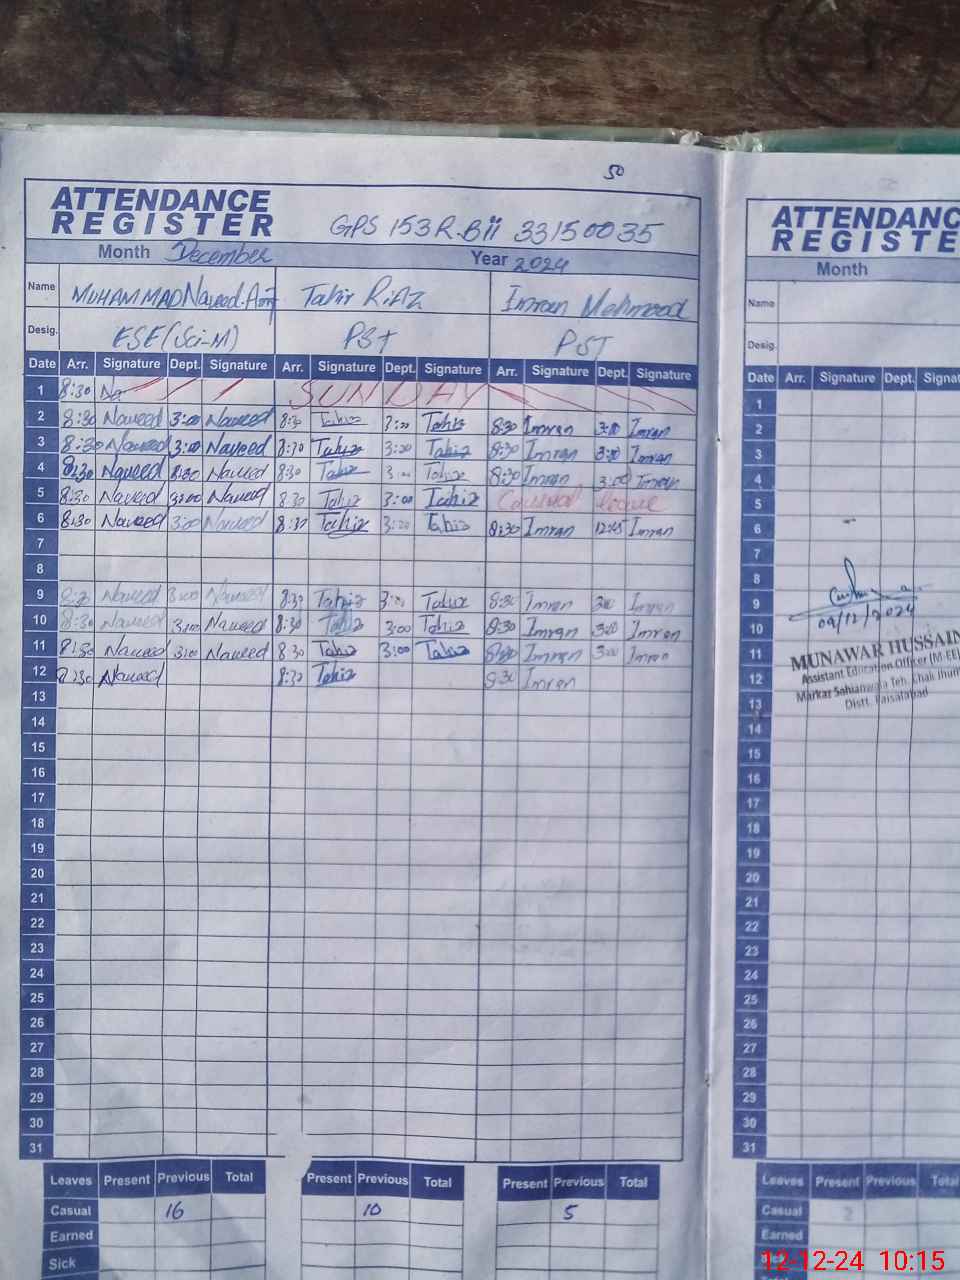 50
ATTENDANCE
REGISTER
GPS 153 R.B ii 33150035
Month December Year 2024
Name MUHAMMAD Naveed Tahir RiAZ Imran Mehmood
Desig. ESE(Sci-M) PST PST
Date Arr. Signature Dept. Signature Arr. Signature Dept. Signature Arr. Signature Dept. Signature
1 8:30 Na SUNDAY
2 8:30 Naveed 3:00 Naveed 8:30 Tahir 3:00 Tahir 8:30 Imran 3:00 Imran
3 8:30 Naveed 3:00 Naveed 8:30 Tahir 3:00 Tahir 8:30 Imran 3:00 Imran
4 8:30 Naveed 3:00 Naveed 8:30 Tahir 3:00 Tahir 8:30 Imran 3:00 Imran
5 8:30 Naveed 3:00 Naveed 8:30 Tahir 3:00 Tahir
6 8:30 Naveed 3:00 Naveed 8:30 Tahir 3:00 Tahir 8:30 Imran 12:45 Imran
7
8
9 8:30 Naveed 3:00 Naveed 8:30 Tahir 3:00 Tahir 8:30 Imran 3:00 Imran
10 8:30 Naveed 3:00 Naveed 8:30 Tahir 3:00 Tahir 8:30 Imran 3:00 Imran
11 8:30 Naveed 3:00 Naveed 8:30 Tahir 3:00 Tahir 8:30 Imran 3:00 Imran
12 8:30 Naveed 8:30 Tahir 8:30 Imran
13
14
15
16
17
18
19
20
21
22
23
24
25
26
27
28
29
30
31
Leaves Present Previous Total Present Previous Total Present Previous Total
Casual 16 10 5
Earned
Sick
ATTENDANC
REGISTE
Month
Name
Desig.
Date Arr. Signature Dept. Signat
1
2
3
4
5
6
7
8
9
10
11
12
13
14
15
16
17
18
19
20
21
22
23
24
25
26
27
28
29
30
31
09/12/2024
MUNAWAR HUSSAIN
Assistant Education Officer (M-EE)
Markar Sahianwala Teh. Chak Jhum
Distt. Faisalabad
Leaves Present Previous Total
Casual 2
Earned
Sick
12-12-24 10:15